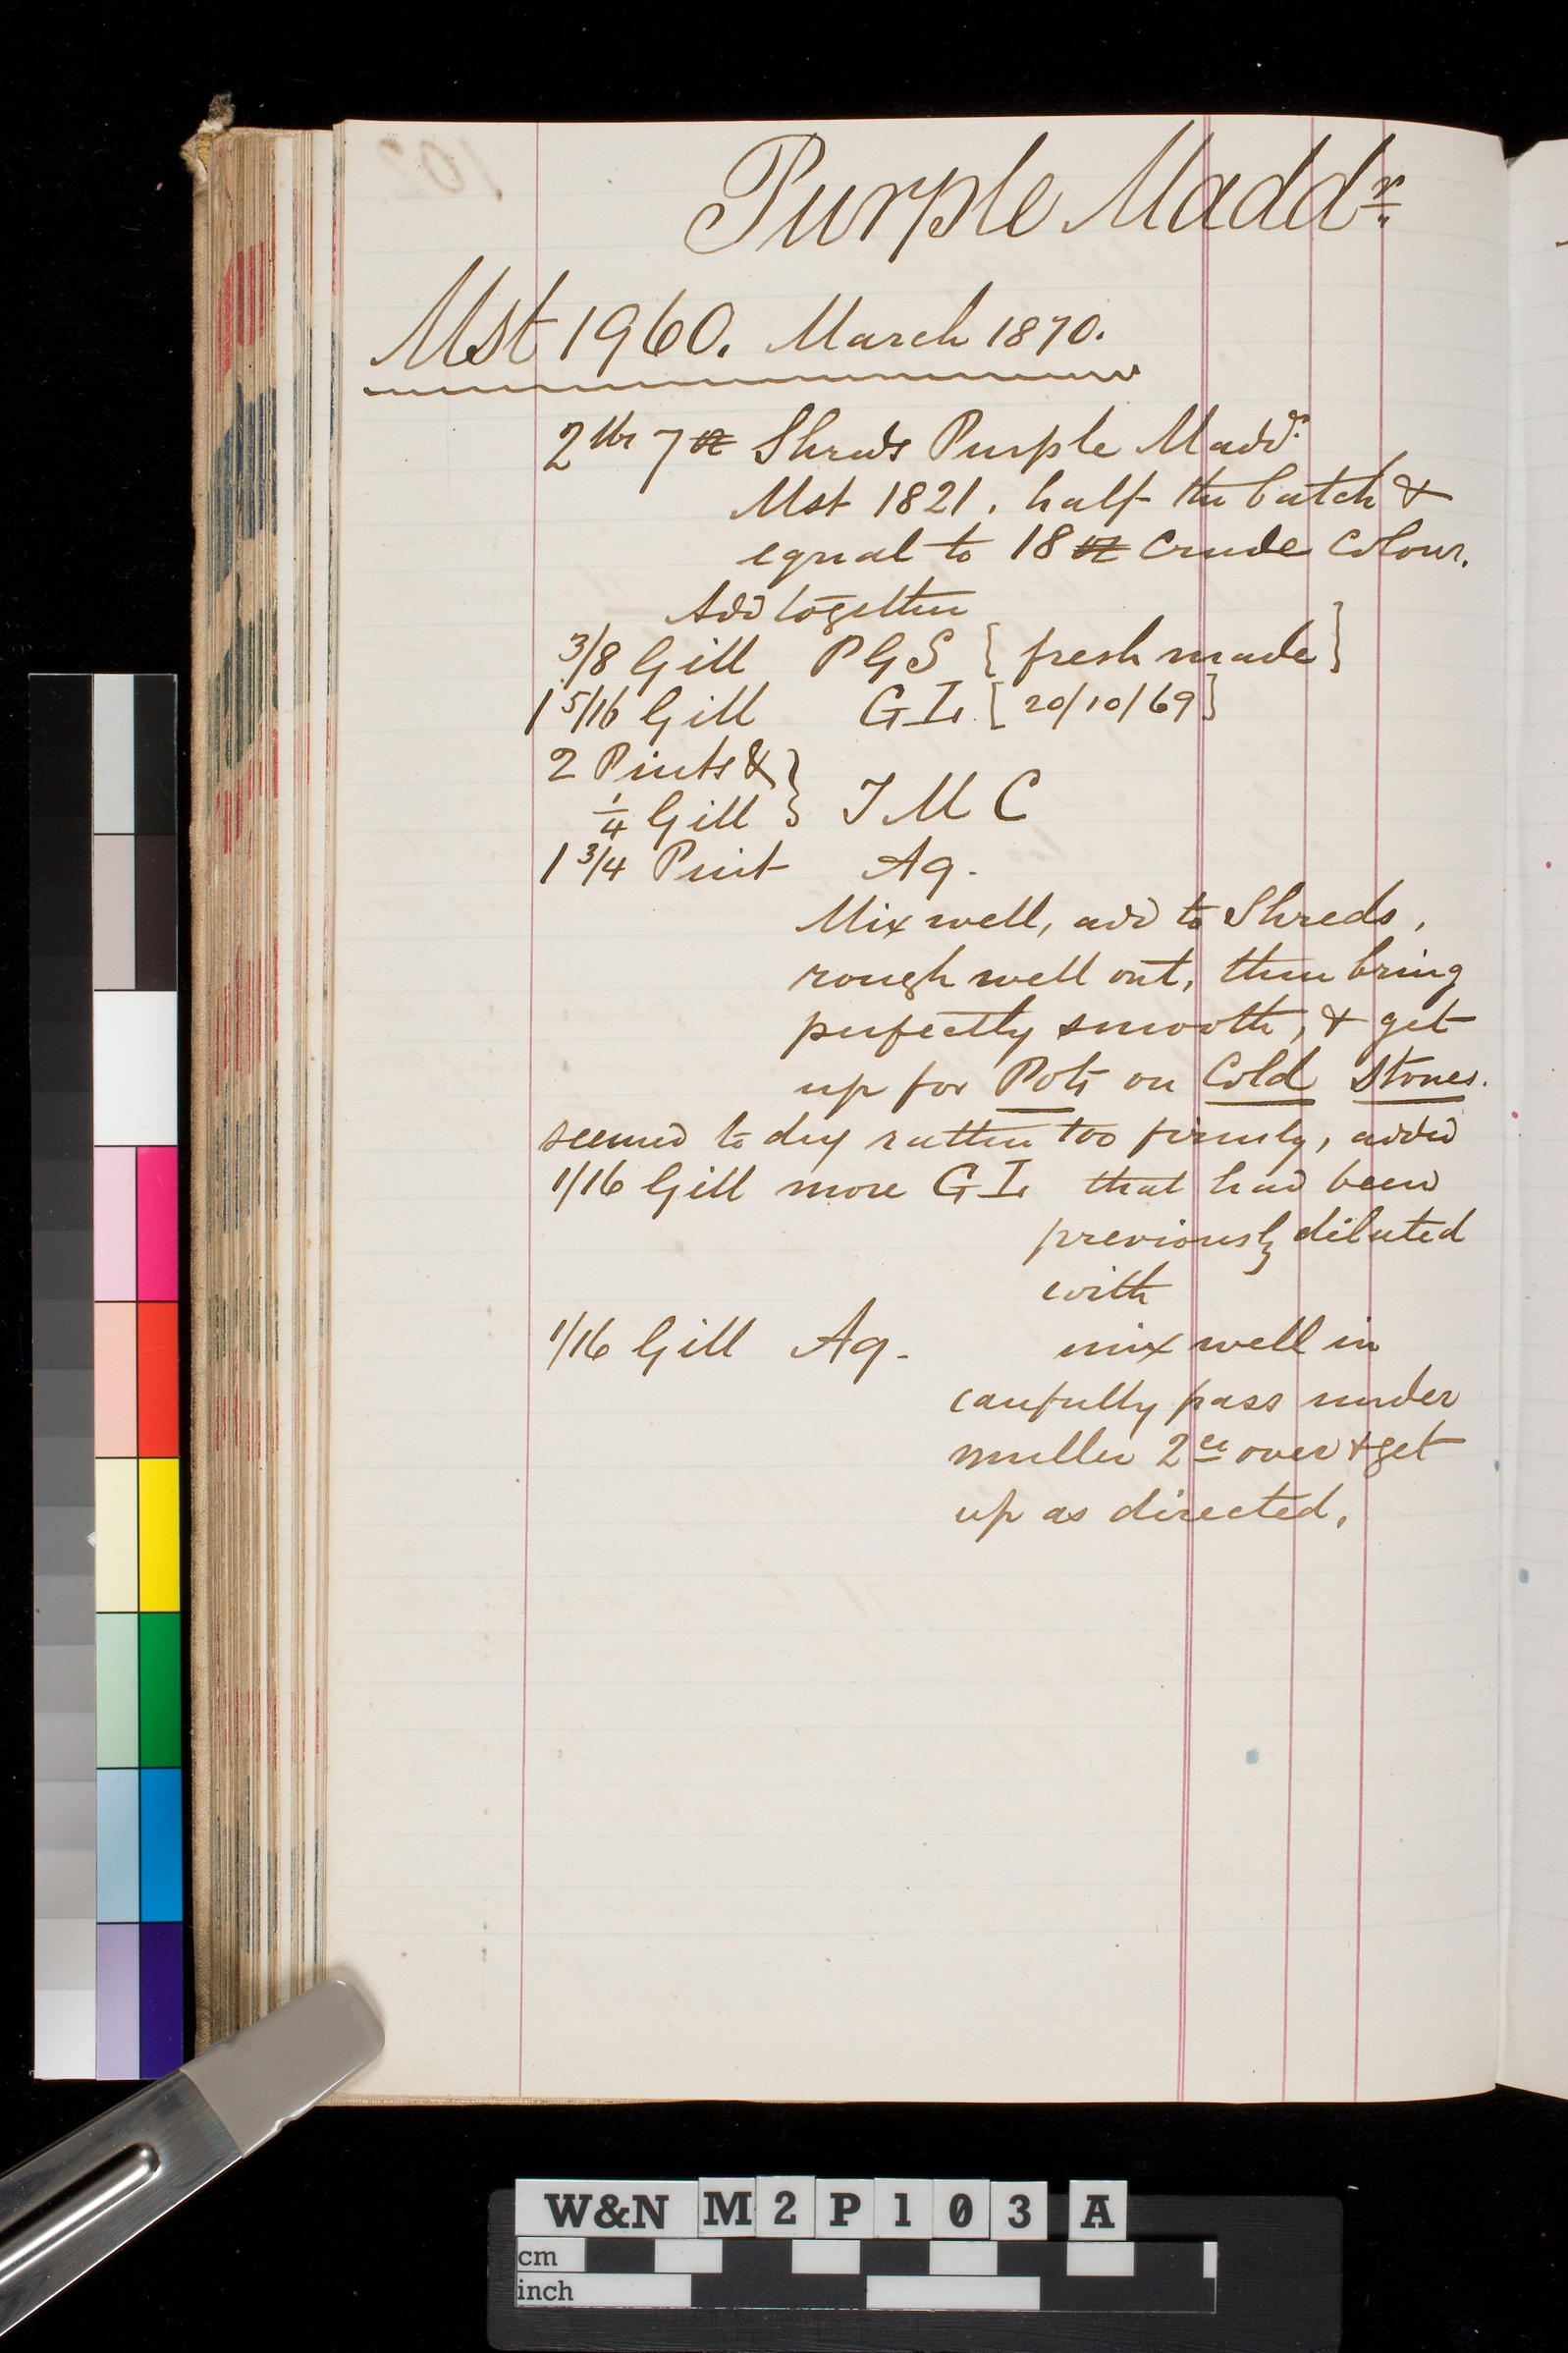 Purple Maddr
Mst 1960. March 1870.
2 lbs 7 oz Shreds Purple Maddr
Mst 1821. half the batch &
equal to 18 oz Crude Colour.
Add together
3/8 Gill PGS { fresh made }
1 5/16 Gill GL. [ 20/10/69 ]
2 Pints & }
1/4 Gill } T M C
1 3/4 Pint Aq.
Mix well, add to Shreds,
rough well out, then bring
perfectly smooth, & get
up for Pots on Cold Stones.
seemed to dry rather too firmly, added
1/16 Gill more GL that had been
previously diluted
with
1/16 Gill Aq. mix well in
carefully pass under
muller 2ce over & get
up as directed.
W&N M2P103 A
cm
inch